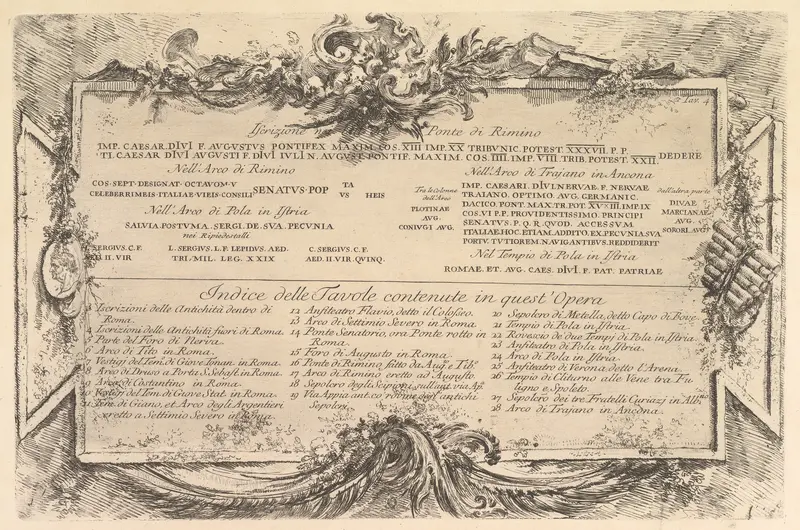 Tav. 4
Iscrizione ne Ponte di Rimino
IMP. CAESAR. DIVI F. AVGVSTVS PONTIFEX MAXIM. COS. XIII IMP. XX TRIBVNIC. POTEST. XXXVII. P. P.
TI. CAESAR DIVI AVGVSTI F. DIVI IVLI N. AVGVST. PONTIF. MAXIM. COS. IIII. IMP. VIII TRIB. POTEST. XXII. DEDERE
Nell'Arco di Rimino
COS. SEPT. DESIGNAT. OCTAVOM. V
CELEBERRIMEIS. ITALIAE. VIEIS. CONSILI SENATVS. POP TA
VS HEIS
Nell'Arco di Pola in Istria
SALVIA. POSTVMA. SERGI. DE. SVA. PECVNIA
nei Ripiedestalli
L. SERGIVS. C. F. L. SERGIVS. L. F. LEPIDVS. AED. C. SERGIVS. C. F.
AED. II. VIR TRI. MIL. LEG. XXIX AED. II. VIR. QVINQ.
Nell'Arco di Trajano in Ancona
Tra le Colonne
dell'Arco
PLOTINAE
AVG.
CONIVGI AVG.
IMP. CAESARI. DIVI. NERVAE. F. NERVAE
TRAIANO. OPTIMO. AVG. GERMANIC.
DACICO. PONT. MAX. TR. POT. XVIIII. IMP. IX
COS. VI P. P. PROVIDENTISSIMO. PRINCIPI
SENATVS. P. Q. R. QVOD. ACCESSVM
ITALIAE. HOC. ETIAM. ADDITO. EX. PECVNIA. SVA
PORTV. TVTIOREM. NAVIGANTIBVS. REDDIDERIT
dall'altra parte
DIVAE
MARCIANAE
AVG.
SORORI. AVG.
Nel Tempio di Pola in Istria
ROMAE. ET. AVG. CAES. DIVI. F. PAT. PATRIAE
Indice delle Tavole contenute in quest'Opera
Iscrizioni delle Antichità dentro di
Roma.
4 Iscrizioni delle Antichità fuori di Roma.
5 Parte del Foro di Nerva.
6 Arco di Tito in Roma.
7 Vestigj del Tem. di Giove Tonan. in Roma.
8 Arco di Druso a Porta S. Sebast. in Roma.
9 Arco di Costantino in Roma.
10 Vestigj del Tem. di Giove Stat. in Roma.
11 Tem. di Giano, et Arco degli Argentieri
eretto a Settimio Severo in Roma.
12 Anfiteatro Flavio, detto il Colosseo.
13 Arco di Settimio Severo in Roma
14 Ponte Senatorio, ora Ponte rotto in
Roma.
15 Foro di Augusto in Roma.
16 Ponte di Rimino fatto da Aug. e Tib.
17 Arco di Rimino eretto ad Augusto.
18 Sepolcro degli Scipioni, sull'ant. via Ap.
19 Via Appia ant. co' rovine degl'antichi
Sepolcri.
20 Sepolcro di Metella, detto Capo di Bove.
21 Tempio di Pola in Istria.
22 Rovescio de' due Tempj di Pola in Istria.
23 Anfiteatro di Pola in Istria.
24 Arco di Pola in Istria.
25 Anfiteatro di Verona, detto l'Arena.
26 Tempio di Clituno alle Vene tra Fu
ligno e Spoleto.
27 Sepolcro dei tre Fratelli Curiazj in Alb.no
28 Arco di Trajano in Ancona.